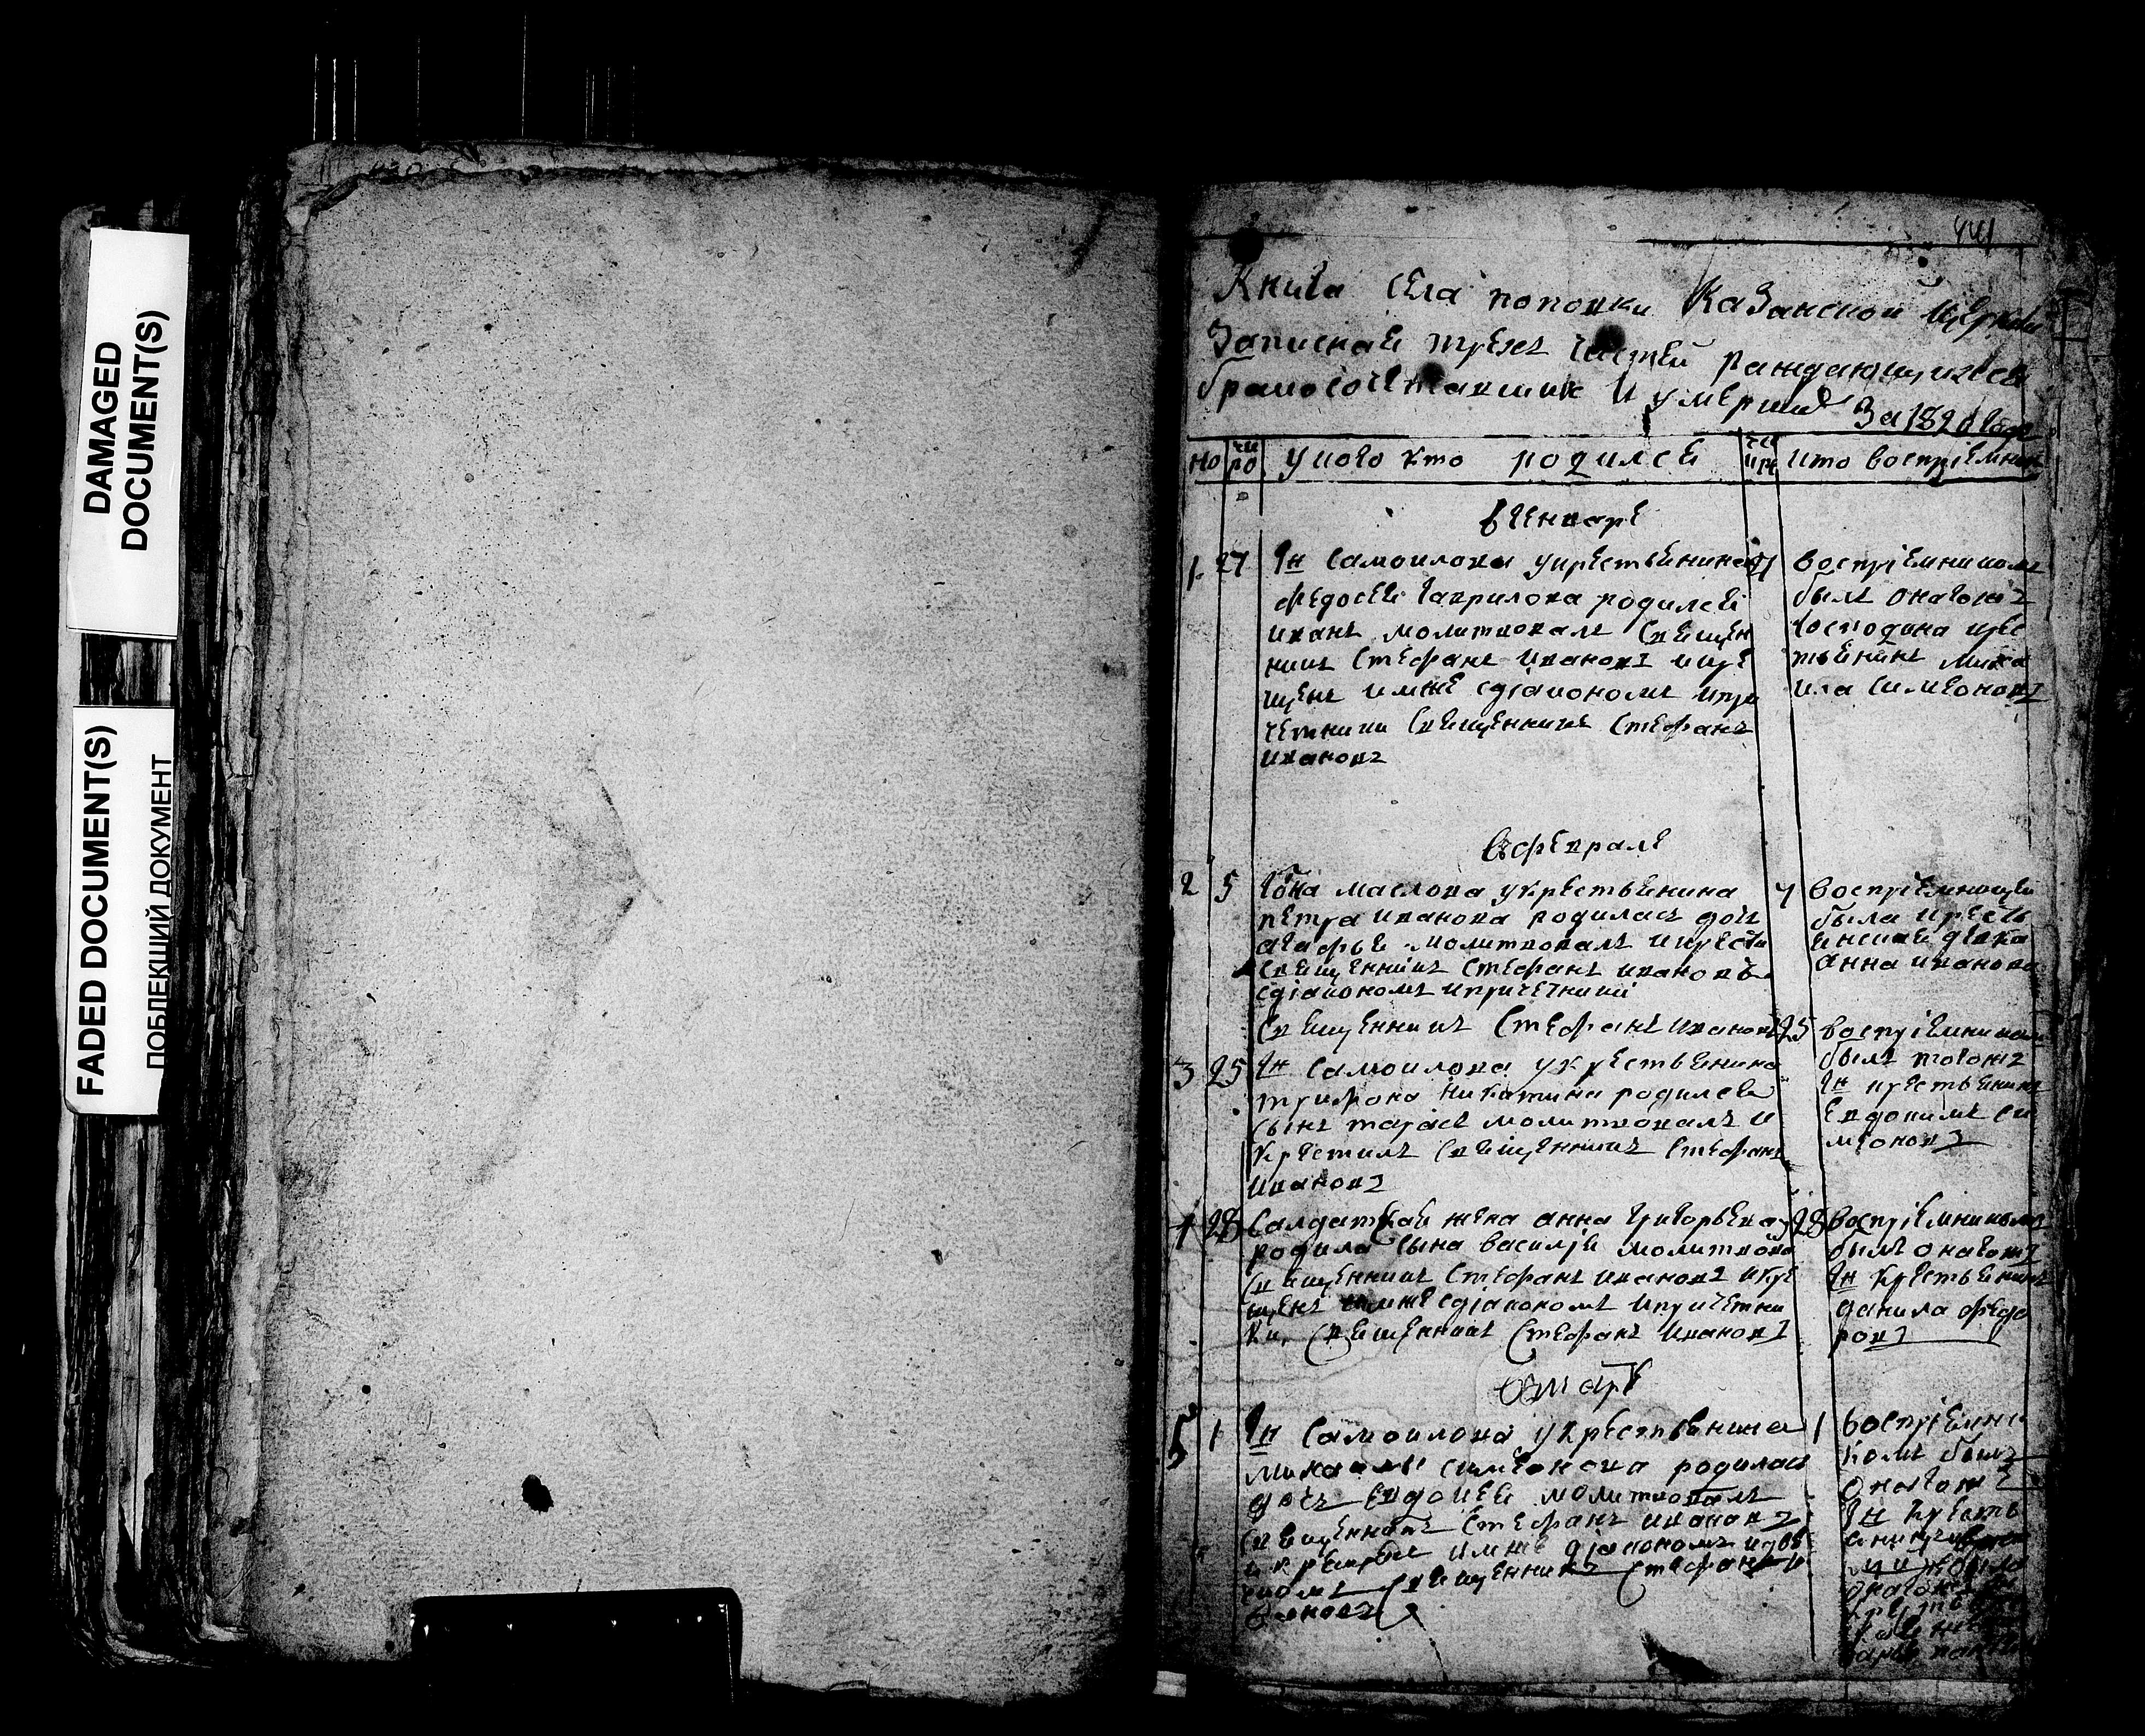 DAMAGED
DOCUMENT(S)
FADED DOCUMENT(S)
ПОБЛЕКШИЙ ДОКУМЕНТ
441
Книга села поповки Казанской церкви
Записная трехъ частей раждающихся
бракосочетавшихся и умерших За 1820 годъ
но чи ро у кого кто родился чи кре кто воспрїемник
в Генваре
1 27 Гн Самоилова у крестьянина
федосея гаврилова родился
иванъ молитвовалъ священ
никъ Стефанъ ивановъ и кре
щенъ имже сдїакономъ и при
четники священникъ Стефанъ
ивановъ
воспрїемникомъ
былъ онагожъ
господина крес
тьянинъ миха
ила Симионовъ
в феврале
2 5 маслова у крестьянина
петра иванова родилась дочь
агафья молитвовалъ и крести
священникъ Стефанъ ивановъ
сдїакономъ и причетники
священникъ Стефанъ ивановъ
7 воспрїемницей
была кресть
янская девка
анна иванова
3 25 Гн Самоилова у крестьянина
трифона никитина родился
сынъ тарасъ молитвовалъ и
крестилъ священникъ Стефанъ
ивановъ
25 воспрїемником
былъ тогожъ
Гн крестьянинъ
Евдокимъ си
мионовъ
4 28 Салдатская жена анна григорьева
родила сына василїя молитвова
священникъ Стефанъ ивановъ и кре
щенъ имже сдїакономъ и причетни
ки. священникъ Стефанъ ивановъ
28 воспрїемникомъ
былъ онагожъ
Гн крестьянинъ
данила федо
ровъ
в марте
5 1 Гн Самоилова у крестьянина
симеонова родилась
дочь Евдокея молитвовалъ
священникъ Стефанъ ивановъ
имже дїакономъ
священникъ Стефанъ
1 воспрїемни
комъ былъ
онагожъ
Гн кресть